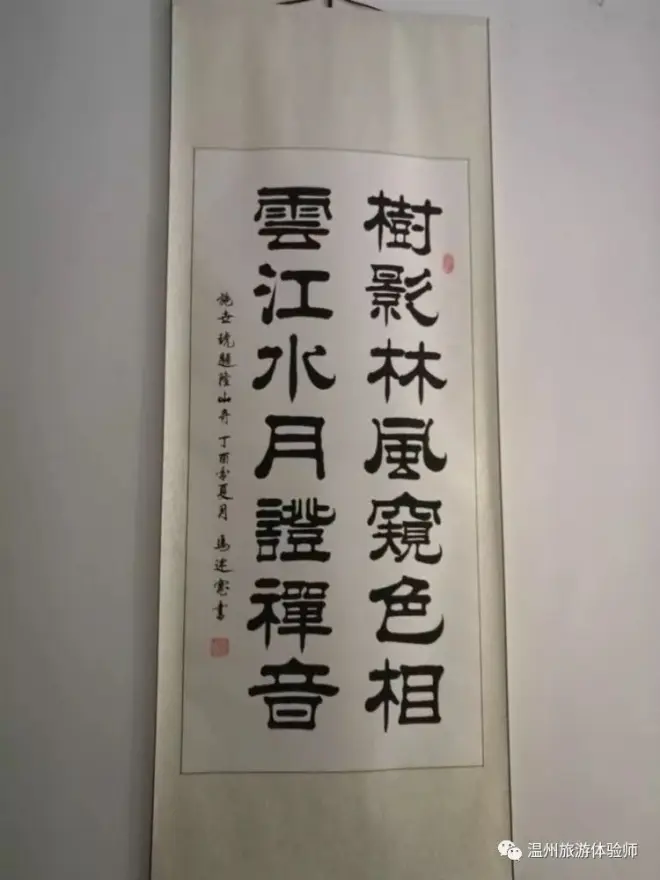 樹影林風窺色相
雲江水月證禪音
施世琥題隆山寺 丁酉年夏月 馬迷書
温州旅游体验师